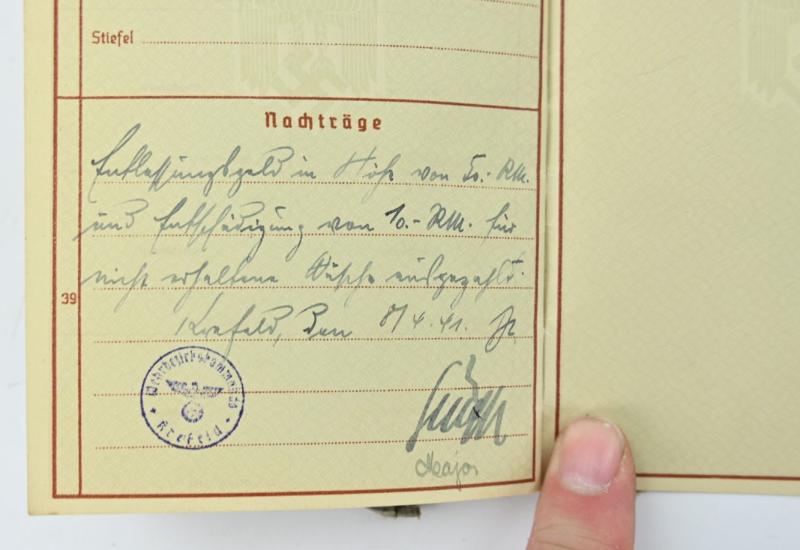 Stiefel
Nachträge
Entlassungsgeld in Höhe von 50.- RM.
und Entschädigung von 10.- RM. für
nicht erhaltene Wäsche ausgezahlt.
39
Krefeld, den 8/4.41.
Wehrbezirkskommando
Krefeld
Major